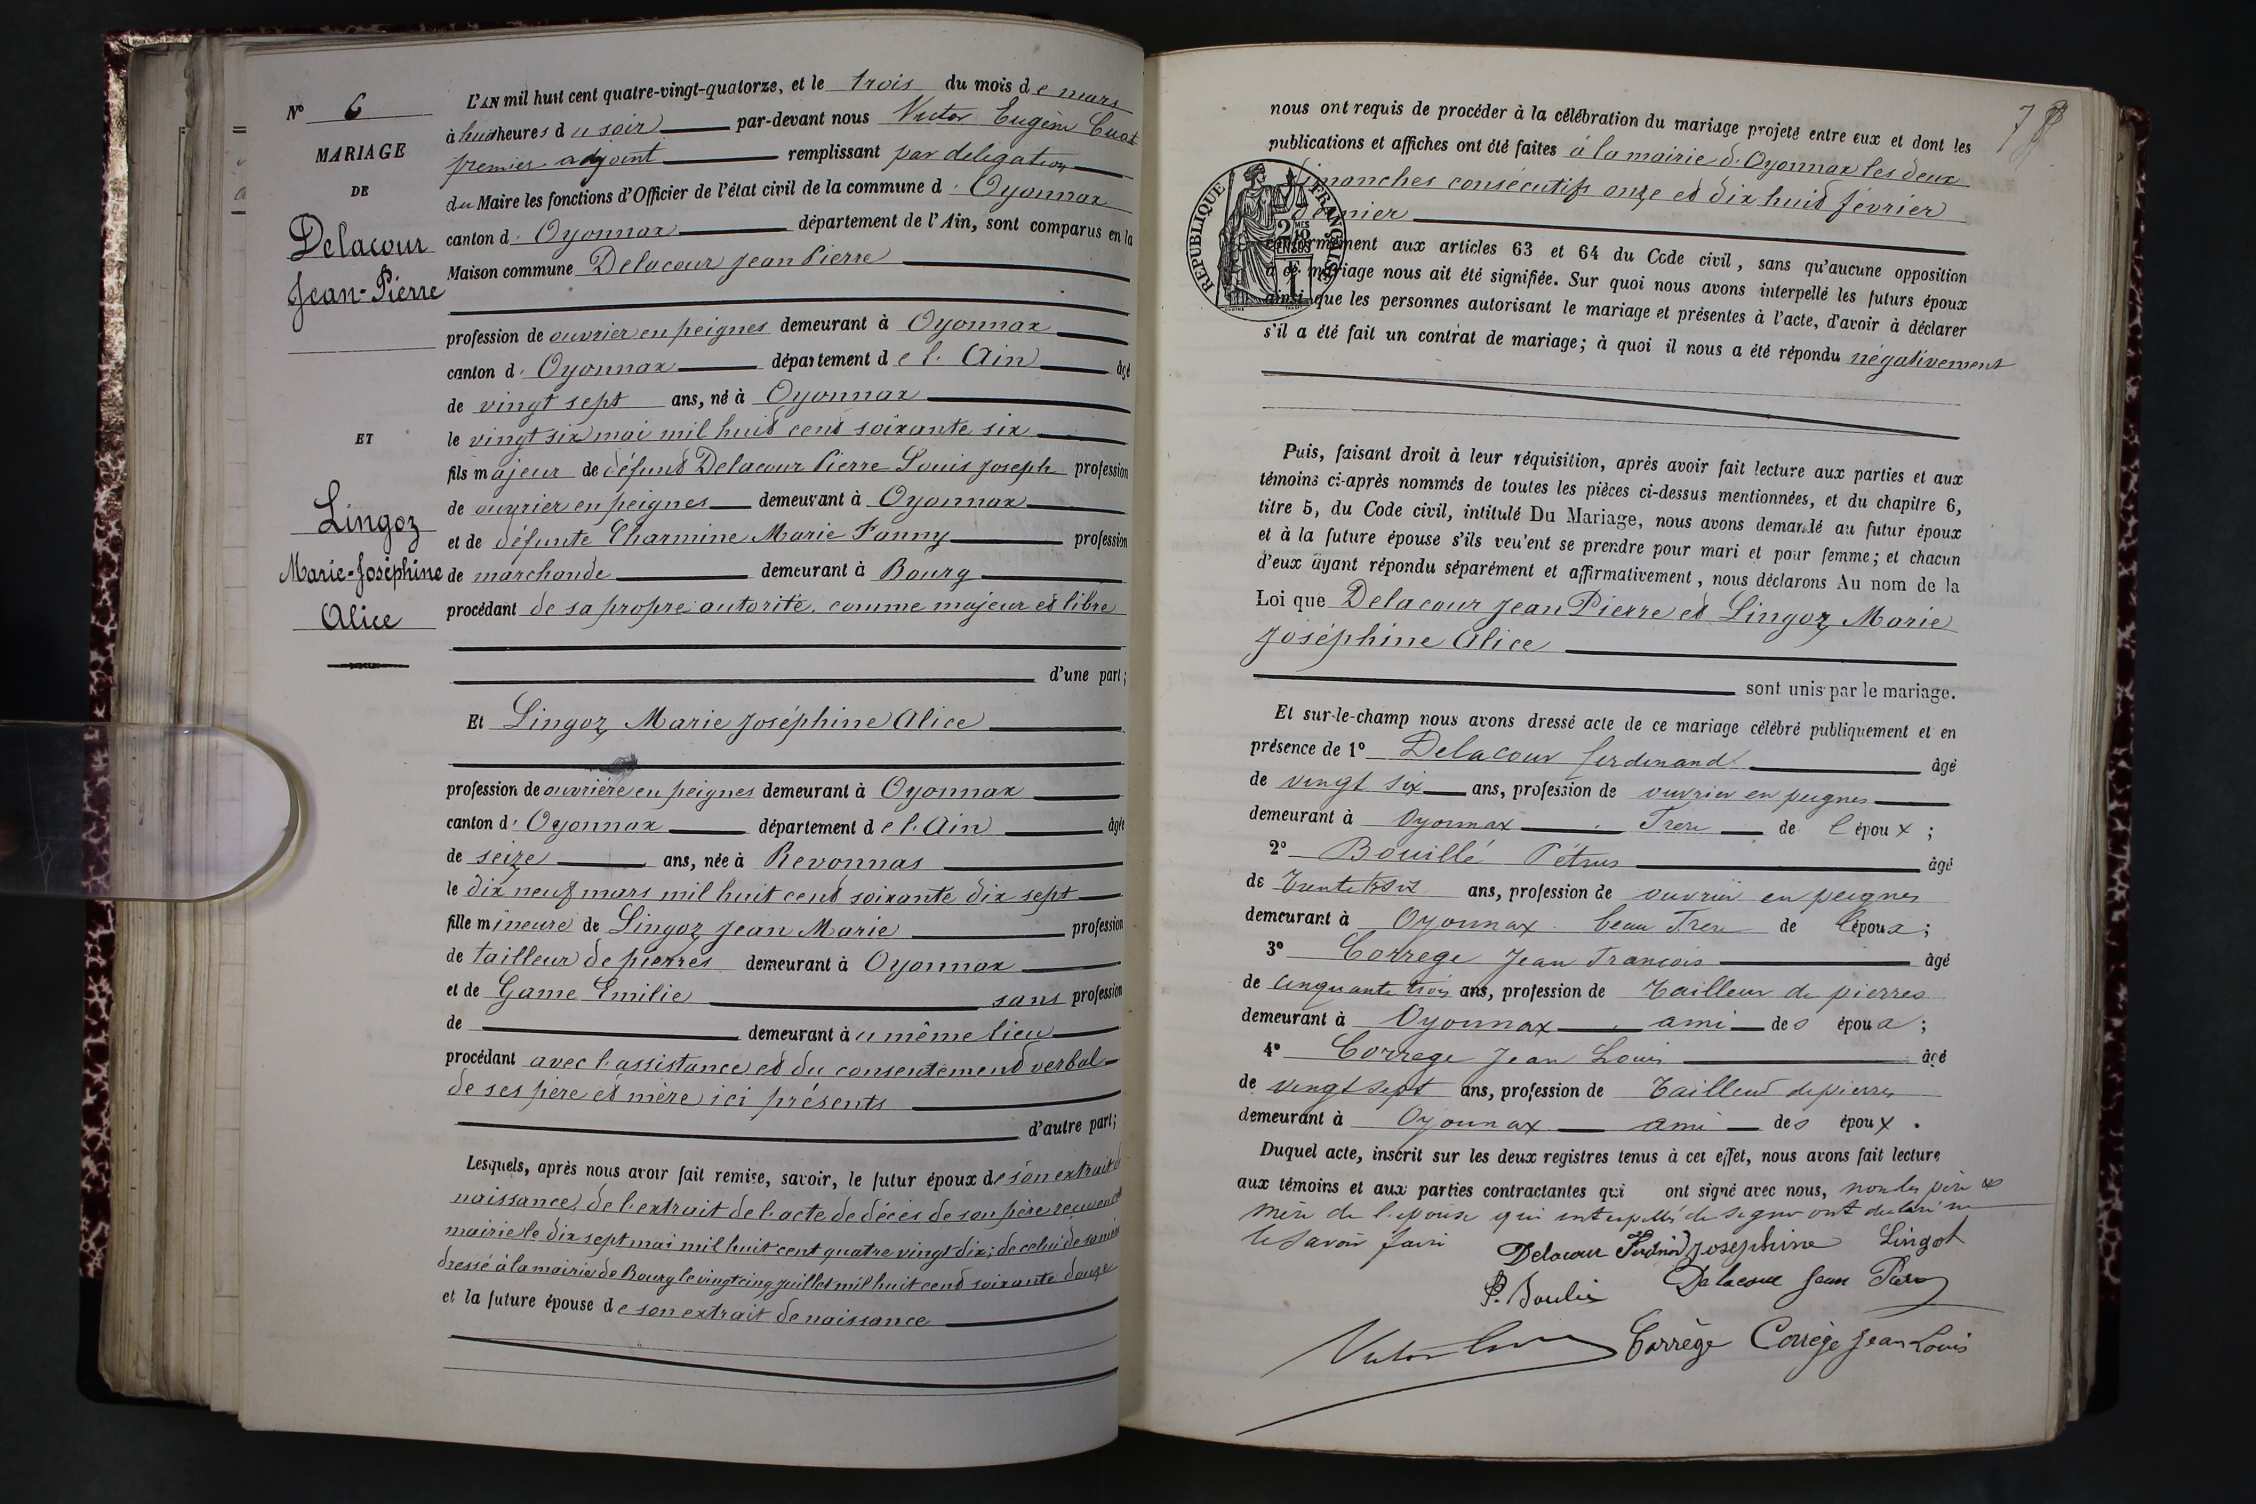 N° 6
MARIAGE
DE
Delacour
Jean-Pierre
ET
Lingoz
Marie-Joséphine
Alice
L'AN mil huit cent quatre-vingt-quatorze, et le trois du mois de mars
à huit heures du soir par-devant nous Victor Eugène
premier adjoint remplissant par délégation
du Maire les fonctions d'Officier de l'état civil de la commune d'Oyonnax
canton d'Oyonnax département de l'Ain, sont comparus en la
Maison commune Delacour Jean Pierre
profession de ouvrier en peignes demeurant à Oyonnax
canton d'Oyonnax département de l'Ain âgé
de vingt sept ans, né à Oyonnax
le vingt six mai mil huit cent soixante six
fils majeur de défunt Delacour Pierre Louis Joseph profession
de ouvrier en peignes demeurant à Oyonnax
et de défunte Charmine Marie Fanny profession
de marchande demeurant à Bourg
procédant de sa propre autorité, comme majeur et libre
d'une part;
Et Lingoz Marie Joséphine Alice
profession de ouvrière en peignes demeurant à Oyonnax
canton d'Oyonnax département de l'Ain âgée
de seize ans, née à Revonnas
le dix neuf mars mil huit cent soixante dix sept
fille mineure de Lingoz Jean Marie profession
de tailleur de pierres demeurant à Oyonnax
et de Game Emilie sans profession
de demeurant à u même lieu
procédant avec l'assistance et du consentement verbal
de ses père et mère ici présents
d'autre part;
Lesquels, après nous avoir fait remise, savoir, le futur époux de son extrait de
naissance, de l'extrait de l'acte de décès de son père reçu en cette
mairie le dix sept mai mil huit cent quatre vingt dix; de celui de sa mère
dressé à la mairie de Bourg le vingt cinq juillet mil huit cent soixante douze
et la future épouse de son extrait de naissance
78
nous ont requis de procéder à la célébration du mariage projeté entre eux et dont les
publications et affiches ont été faites à la mairie d'Oyonnax les deux
dimanches consécutifs onze et dix huit février
dernier
RÉPUBLIQUE FRANÇAISE
conformément aux articles 63 et 64 du Code civil, sans qu'aucune opposition
à ce mariage nous ait été signifiée. Sur quoi nous avons interpellé les futurs époux
ainsi que les personnes autorisant le mariage et présentes à l'acte, d'avoir à déclarer
s'il a été fait un contrat de mariage; à quoi il nous a été répondu négativement
Puis, faisant droit à leur réquisition, après avoir fait lecture aux parties et aux
témoins ci-après nommés de toutes les pièces ci-dessus mentionnées, et du chapitre 6,
titre 5, du Code civil, intitulé Du Mariage, nous avons demandé au futur époux
et à la future épouse s'ils veulent se prendre pour mari et pour femme; et chacun
d'eux ayant répondu séparément et affirmativement, nous déclarons Au nom de la
Loi que Delacour Jean Pierre et Lingoz Marie
Joséphine Alice
sont unis par le mariage.
Et sur-le-champ nous avons dressé acte de ce mariage célébré publiquement et en
présence de 1° Delacour ferdinand âgé
de vingt six ans, profession de ouvrier en peignes
demeurant à Oyonnax frere de l'époux;
2° Bouillé Pétrus âgé
de trente ans, profession de ouvrier en peignes
demeurant à Oyonnax beau frere de l'époux;
3° Correge Jean François âgé
de cinquante trois ans, profession de Tailleur de pierres
demeurant à Oyonnax ami des époux;
4° Correge Jean Louis âgé
de vingt sept ans, profession de Tailleur de pierres
demeurant à Oyonnax ami des époux.
Duquel acte, inscrit sur les deux registres tenus à cet effet, nous avons fait lecture
aux témoins et aux parties contractantes qui ont signé avec nous, non les père et
mère de l'épouse qui interpellés de signer ont déclaré ne
le savoir faire
Delacour Josephine Lingot
Delacour Jean Pierre
Corrège Corrège Jean Louis